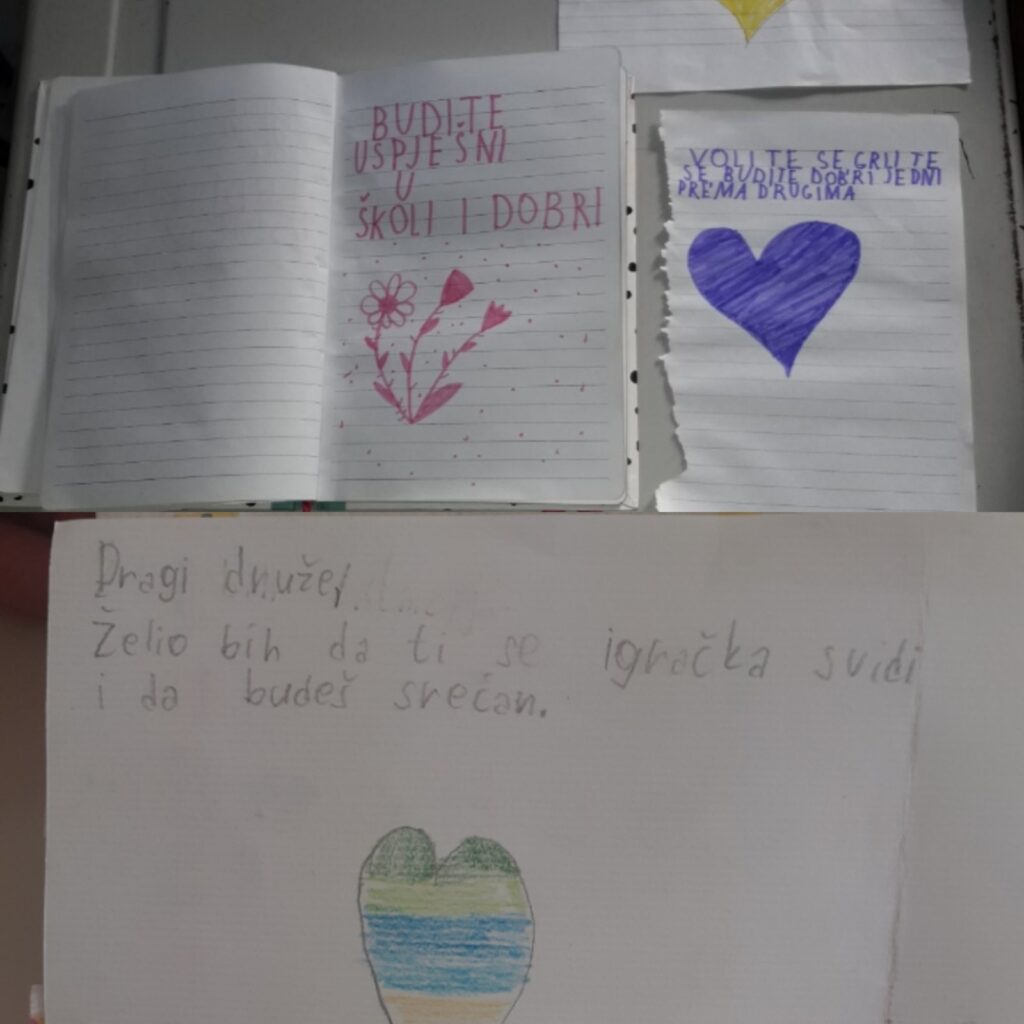 BUDITE
USPJEŠNI
U
ŠKOLI I DOBRI
VOLITE SE GRLITE
SE BUDITE DOBRI JEDNI
PREMA DRUGIMA
Dragi druže,
Želio bih da ti se igračka svidi
i da budeš srećan.